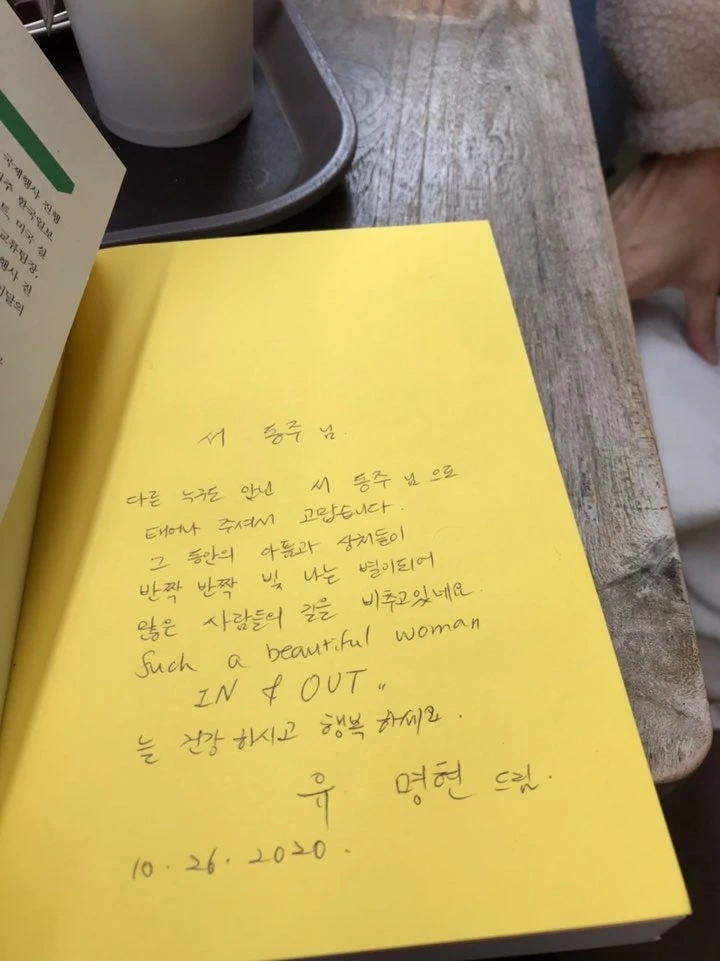 국제행사 진행
한국일보
미국 실
교류팀장,
행사 진
서 동주 님.
다른 누구도 아닌 서 동주 님 으로
태어나 주셔서 고맙습니다.
그 동안의 아픔과 상처들이
반짝 반짝 빛 나는 별이되어
많은 사람들의 길을 비추고있네요.
Such a beautiful woman
IN & OUT "
늘 건강 하시고 행복 하세요.
유 명현 드림.
10. 26. 2020.